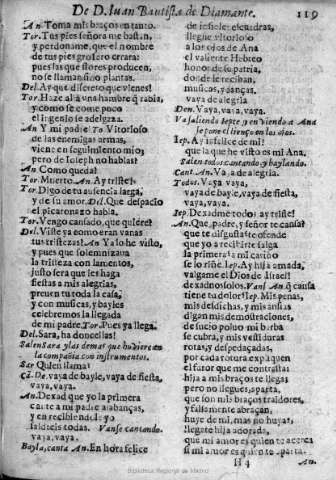 De D. Iuan Bautista de Diamante.
119
An. Toma mis braços en tanto.
Tor. Tus pies señora me bastan,
y perdoname, que el nombre
de tus pies grosero errara:
pues las que flores producen,
no se llaman sino plantas.
Del. Ay que discreto que vienes!
Tor. Haze alla vn hambre q̃ rabia,
y como se come poco
el ingenio se adelgaza.
An. Y mi padre? To. Vitorioso
de las enemigas armas,
viene en seguimiento mio;
pero de Ioseph no hablas?
An. Como queda?
Tor. Muerto. An. Ay triste!
Tor. Digo de tu ausencia larga,
y de tu amor. Del. Que despacio
el picaronazo habla.
Tor. Vengo cansado, que quieres?
Del. Viste ya como eran vanas
tus tristezas? An. Ya lo he visto,
y pues que solemnizava
la tristeza con lamentos,
justo sera que les haga
fiestas a mis alegrias,
preuen tu toda la casa,
y con musicas, y bayles
celebremos la llegada
de mi padre. Tor. Pues ya llega.
Del. Sara, ha donzellas!
Salen Sara y las demas que huviere en
la compañia con instrumentos.
Sar. Quien llama?
vaya de bayle, vaya de fiesta,
vaya, vaya.
An. Dexad que yo la primera
cante a mi padre alabanças,
y en recibiendole yo
saldreis todas. Vanse cantando.
vaya, vaya.
Bayla, canta An. En hora felice
de infieles esquadras,
llegue vitorioso
a los ojos de Ana
el valiente Hebreo
honor de su patria,
donde le reciban,
musicas, y danças,
vaya de alegria
Den. Vaya, vaya, vaya.
Va saliendo Iepte y en viendo a Ana
se pone el lienço en los ojos.
Iep. Ay infelice de mi!
que la que he visto es mi Ana.
Salen todos cantando y baylando.
Cant. An. Vaya de alegria.
Todos. Vaya, vaya,
vaya de bayle, vaya de fiesta,
vaya, vaya.
Iep. Dexadme todos ay triste!
An. Que, padre, y señor te cansa?
que te disgusta? te ofende
que yo a recibirte salga
la primera? a mi cariño
se le riñe. Iep. Ay hija amada,
valgame el Dios de Israel!
dexadnos solos. Van! An. q̃ causa
tiene tu dolor? Iep. Mis penas,
mis desdichas, y mis ansias
digan mis demostraciones,
de sucio poluo mi barba
se cubra, y mis vestiduras
rotas, y despedaçadas,
por cada rotura expliquen
el furor que me contrasta:
hija a mis braços te llegas
pero no llegues, aparta,
que son mis braços traidores,
y falsamente abraçan,
huye de mi, mas no huyas,
llegate hija adorada,
que mi amor es quien te acerca
si mi amor es quien te aparta.
H4
An.